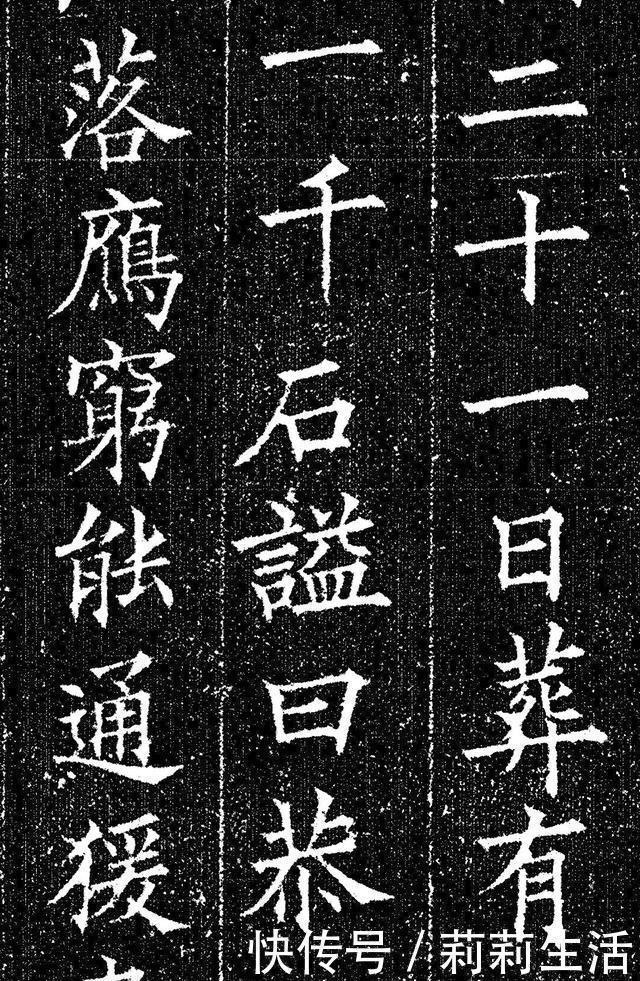 二十一日葬有
一千石謚曰恭
落鴈窮能通猨
快传号／莉莉生活